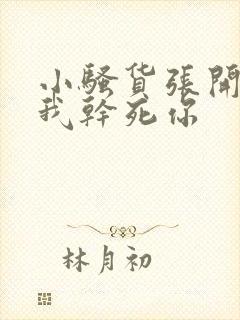 小騷貨張開
我幹死你
林月初